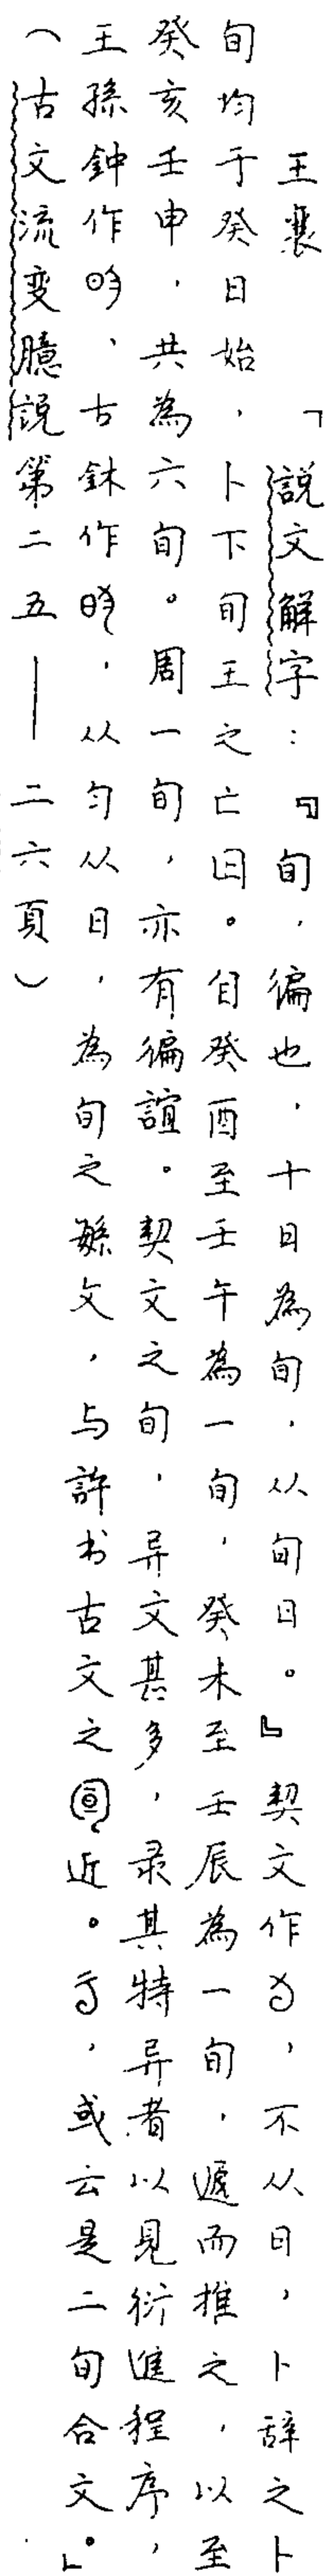 王襄　「說文解字：『旬，徧也，十日為旬，从旬日。』契文作，不从日，卜辭之卜
旬均于癸日始，卜下旬王之亡囚。自癸酉至壬午為一旬，癸未至壬辰為一旬，遞而推之，以至
癸亥壬申，共為六旬。周一旬，亦有徧誼。契文之旬，异文甚多，录其特异者以見衍進程序，
王孫鐘作、古鉢作，从勻从日，為旬之緐文，与許书古文之近。，或云是二旬合文。」
（古文流变臆説第二五—二六頁）